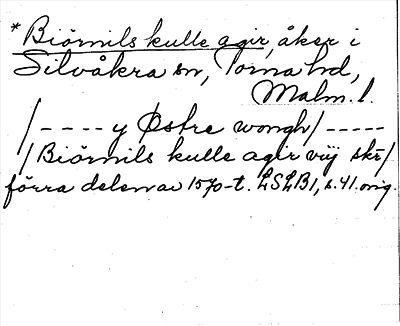 * Biörnils kulle agir, åker i
Silvåkra sn, Torna hd,
Malm. l.
/ - - - - y Østre wongh / - - - - -
/ Biörnils kulle agir vıȷ sk­r /
förra delen av 1570-t. LSLB1, s. 41. orig.